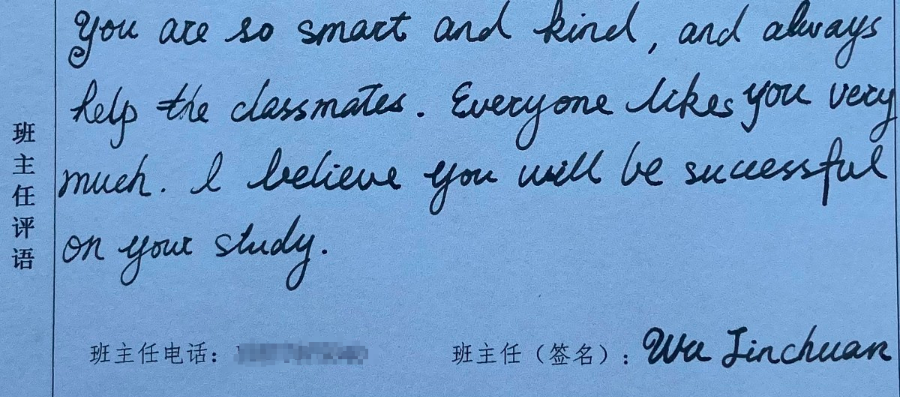 You are so smart and kind, and always
help the classmates. Everyone likes you very
much. I believe you will be successful
on your study.
班主任评语
班主任电话：
班主任（签名）: Wu Jinchuan